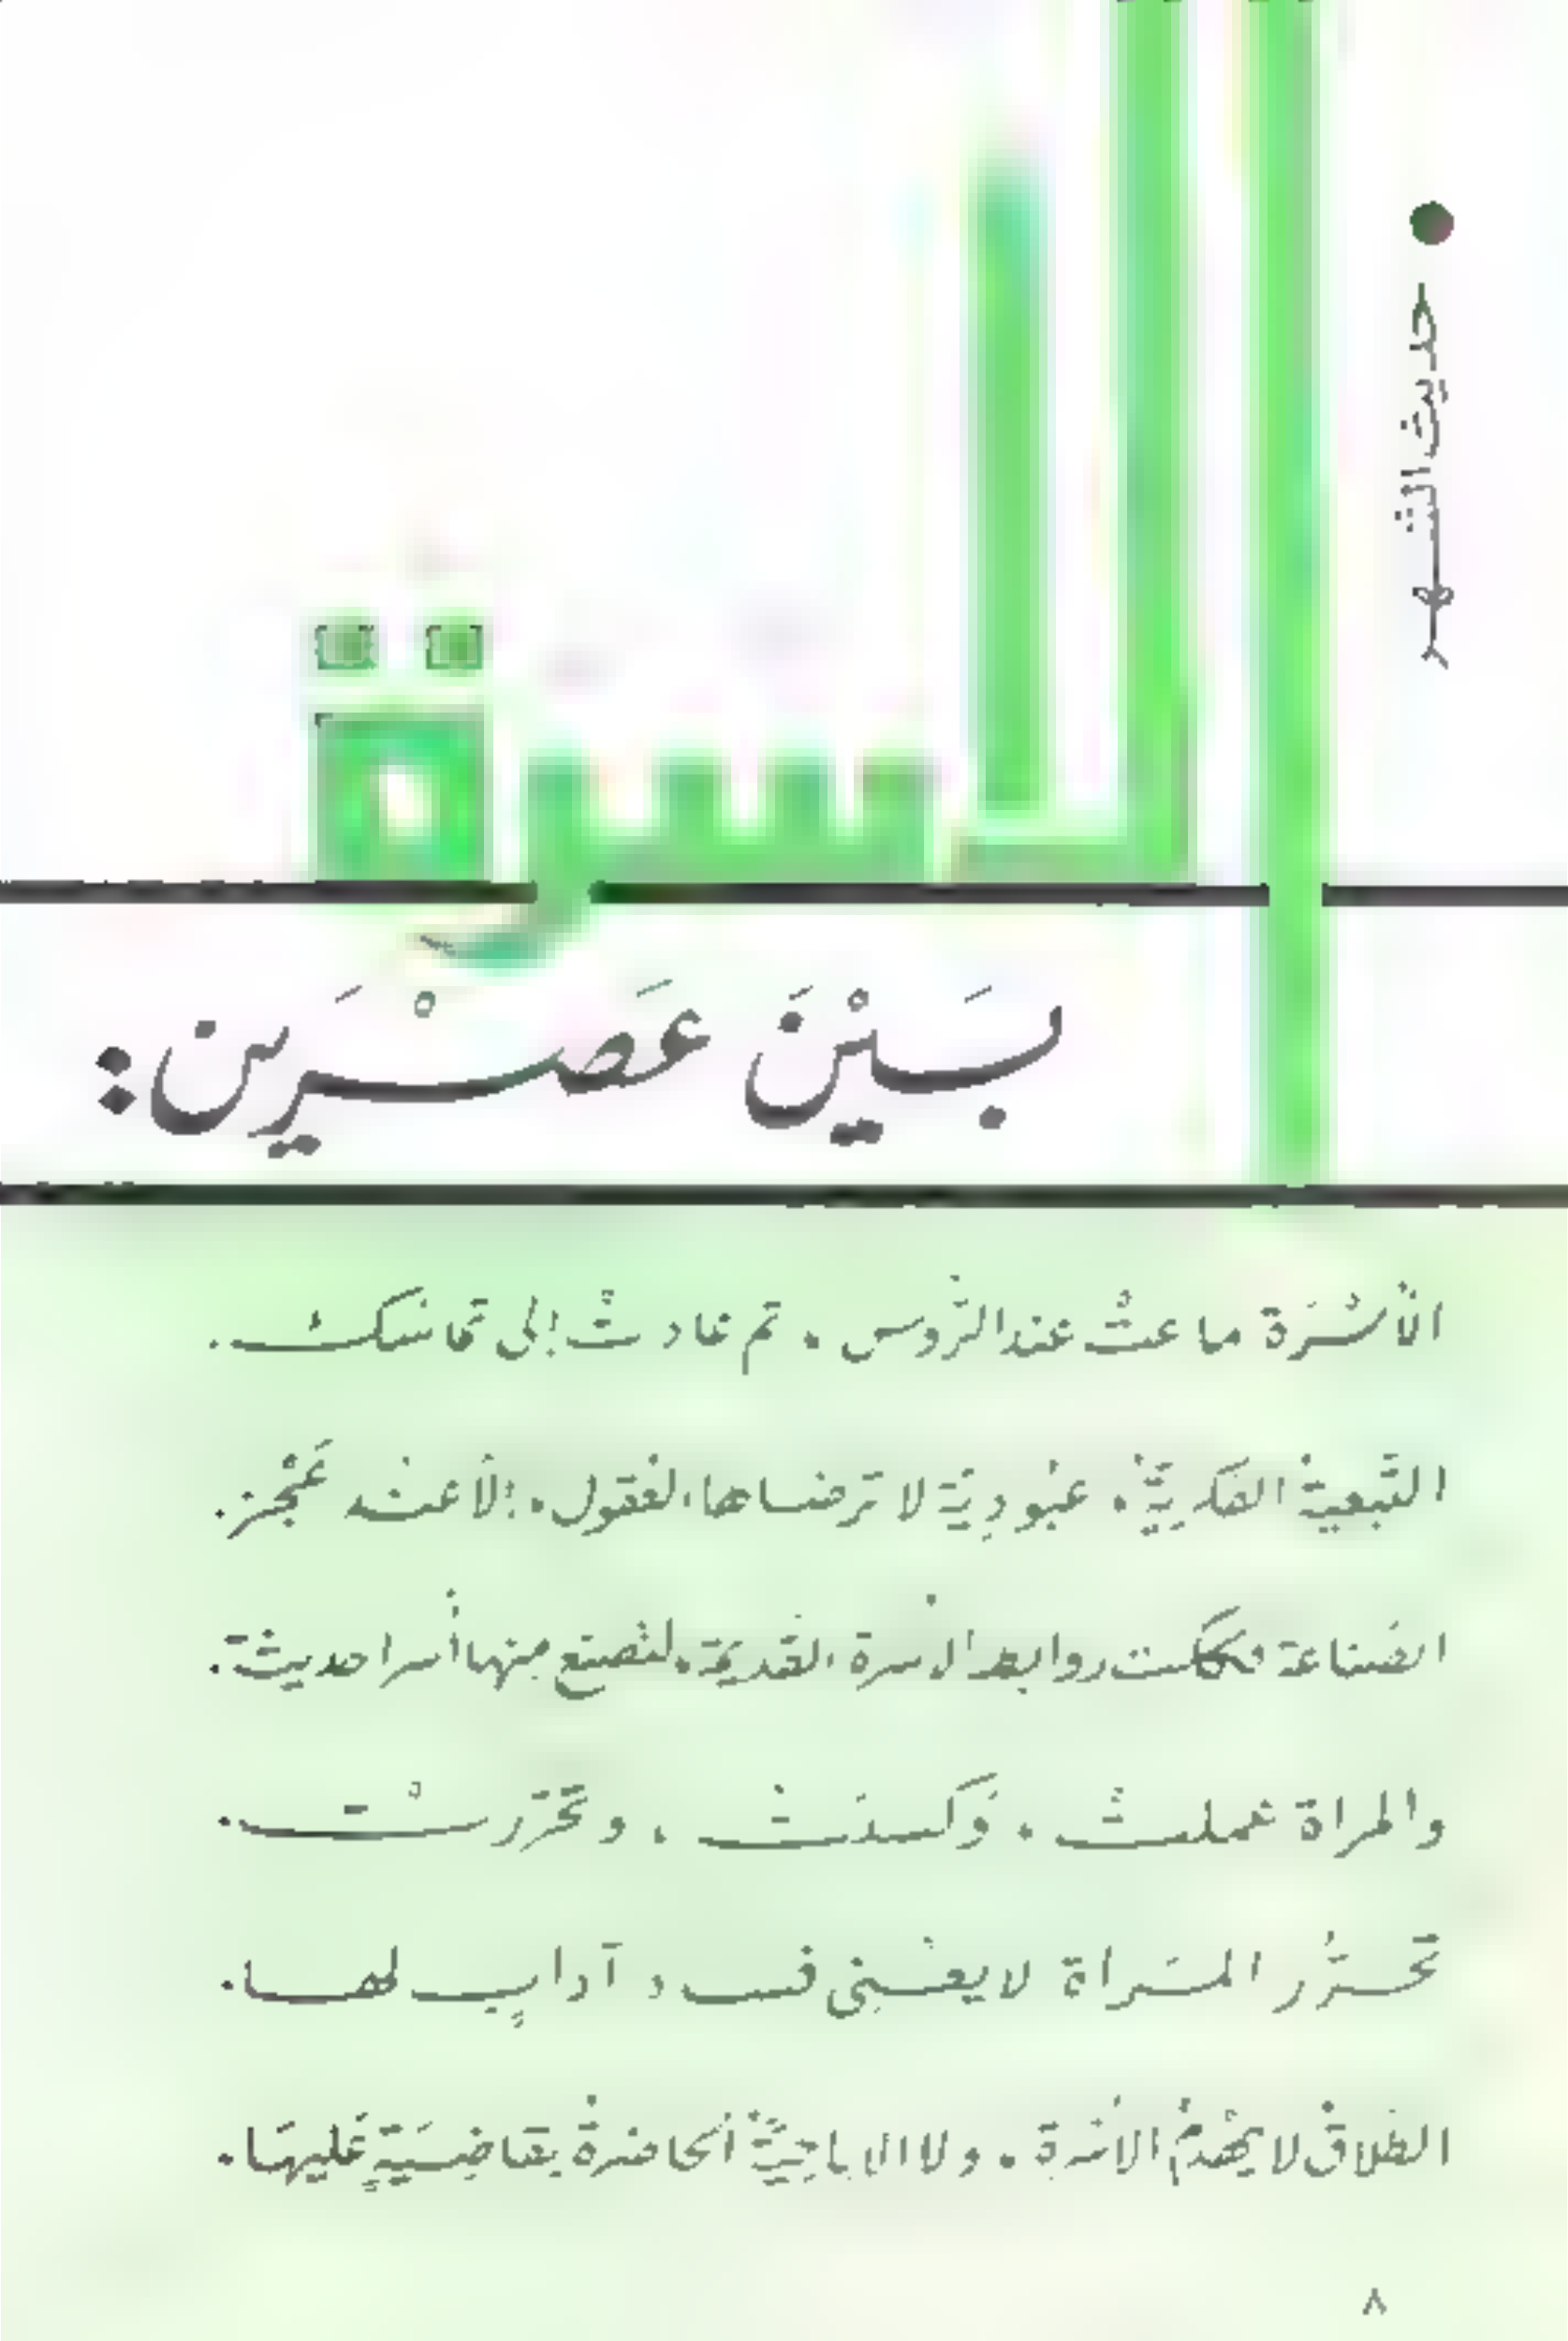 حديث الشهر
الأسرة
بَيْنَ عَصْرَين:
الأُسْرَة ماعتْ عند الرّوس . ثم عادتْ إلى تماسك .
التَّبعيةُ الفكريّةُ . عبُوديَّة لا ترضاها العقول . إلاّ عنْد عَجْز .
الصّناعة فككت روابط الأسرة القديمة . لتصنع منها أسرا حديثة .
والمرأة عملتْ . وَكسبَتْ . وتحرّرتْ .
تحرُّر المرأة لا يعْني فساد آدابٍ لها .
الطلاقُ لا يهْدمُ الأسْرة . ولا الإباحيَّةُ الحاضرةُ بقاضيَةٍ عَليهَا .
٨